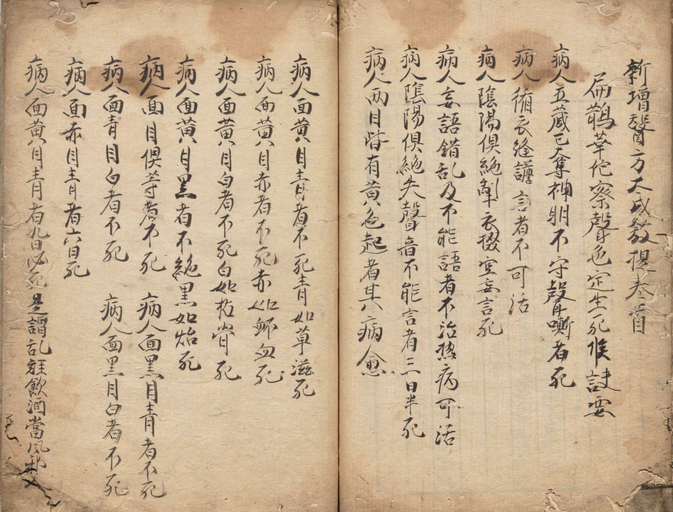 新增醫方大成教提叁首
扁鵲華佗察聲色定生死候訣要
病人五蔵已奪神明不守聲嘶者死
病人循衣縫譫言者不可活
病人陰陽俱絶掣衣掇空妄言死
病人妄語錯乱及不能語者不治热病可活
病人陰陽俱絶失聲音不能言者三日半死
病人两目眥有黄色起者其病愈
病人面黄目青者不死青如草滋死
病人面黄目赤者不死赤如衃血死
病人面黄目白者不死白如枯骨死
病人面黄目黑者不絶黑如炲死
病人面目俱等者不死 病人面黑目青者不死
病人面青目白者不死 病人面黑目白者不死
病人面赤目青者六日死
病人面黄目青者九日必死是謂乱経飲酒當風邪入